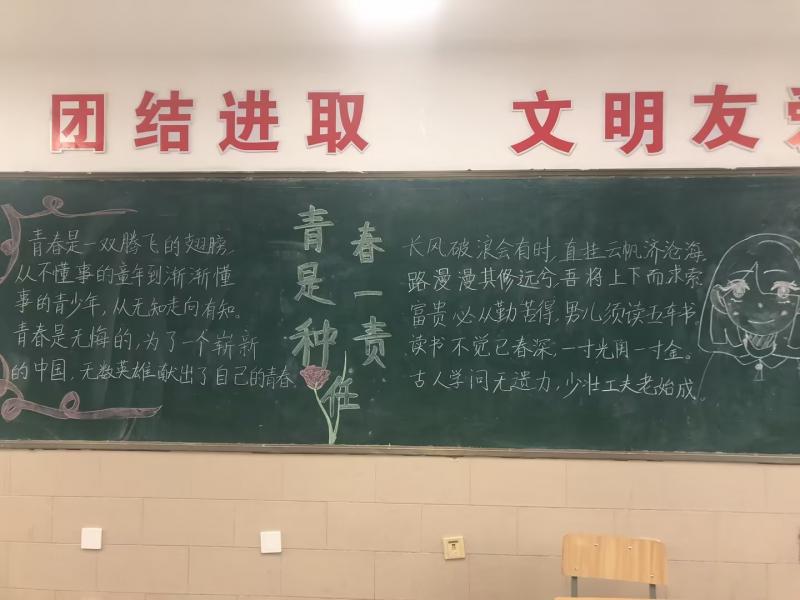 团结进取 文明友爱
青春是一双腾飞的翅膀,
从不懂事的童年到渐渐懂
事的青少年,从无知走向有知。
青春是无悔的,为了一个崭新
的中国,无数英雄献出了自己的青春
青春
是一
种责
任
长风破浪会有时,直挂云帆济沧海。
路漫漫其修远兮,吾将上下而求索
富贵必从勤苦得,男儿须读五车书。
读书不觉已春深,一寸光阴一寸金。
古人学问无遗力,少壮工夫老始成。